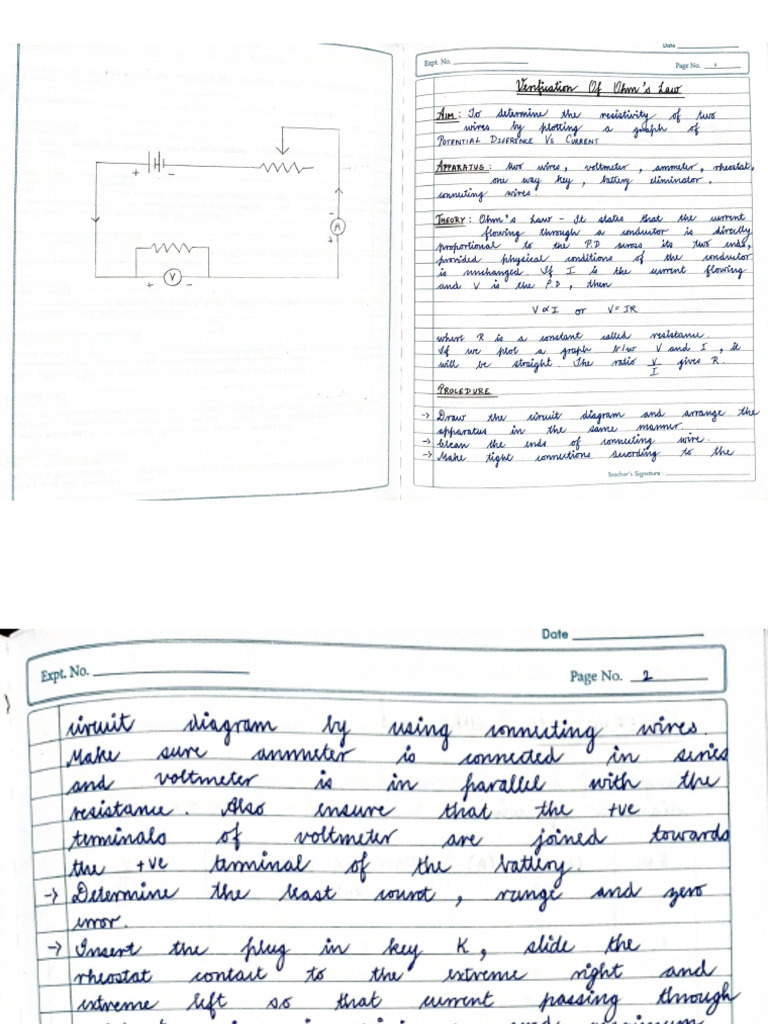 + -
-
A
+
V
+ -
Date
Expt. No.
Page No. 1
Verification Of Ohm's Law
AIM : To determine the resistivity of two
wires by plotting a graph of
POTENTIAL DIFERENCE Vs CURRENT
APPARATUS : two wires, voltmeter, ammeter, rheostat,
one way key, battery eliminator,
connecting wires.
THEORY : Ohm's Law - It states that the current
flowing through a conductor is directly
proportional to the P.D across its two ends,
provided physical conditions of the conductor
is unchanged. If I is the current flowing
and V is the P.D, then
V ∝ I or V = IR
where R is a constant called resistance.
If we plot a graph b/w V and I, it
will be straight. The ratio V/I gives R.
PROCEDURE
-> Draw the circuit diagram and arrange the
apparatus in the same manner.
-> Clean the ends of connecting wire.
-> Make tight connections according to the
Teacher's Signature :
Date
Expt. No.
Page No. 2
circuit diagram by using connecting wires.
Make sure ammeter is connected in series
and voltmeter is in parallel with the
resistance. Also ensure that the +ve
terminals of voltmeter are joined towards
the +ve terminal of the battery.
-> Determine the least count, range and zero
error.
-> Insert the plug in key K, slide the
rheostat contact to the extreme right and
extreme left so that current passing through